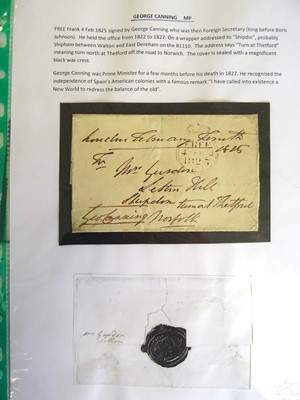 GEORGE CANNING MP
FREE Frank 4 Feb 1825 signed by George Canning who was then Foreign Secretary (long before Boris
Johnson). He held the office from 1822 to 1827. On a wrapper addressed to "Shipdio", probably
Shipdham between Walton and East Dereham on the B1110. The address says "Turn at Thetford"
meaning turn north at Thetford off the road to Norwich. The cover is sealed with a magnificent
black wax crest.
George Canning was Prime Minister for a few months before his death in 1827. He recognised the
independence of Spain's American colonies with a famous remark "I have called into existence a
New World to redress the balance of the old".
London February fourth 1825
FREE
4 FE 4
1825
To
Mrs Gurdon
Letton Hill
Shipdon turn at Thetford
Geo Canning Norfolk
Mrs Gurdon
Letton